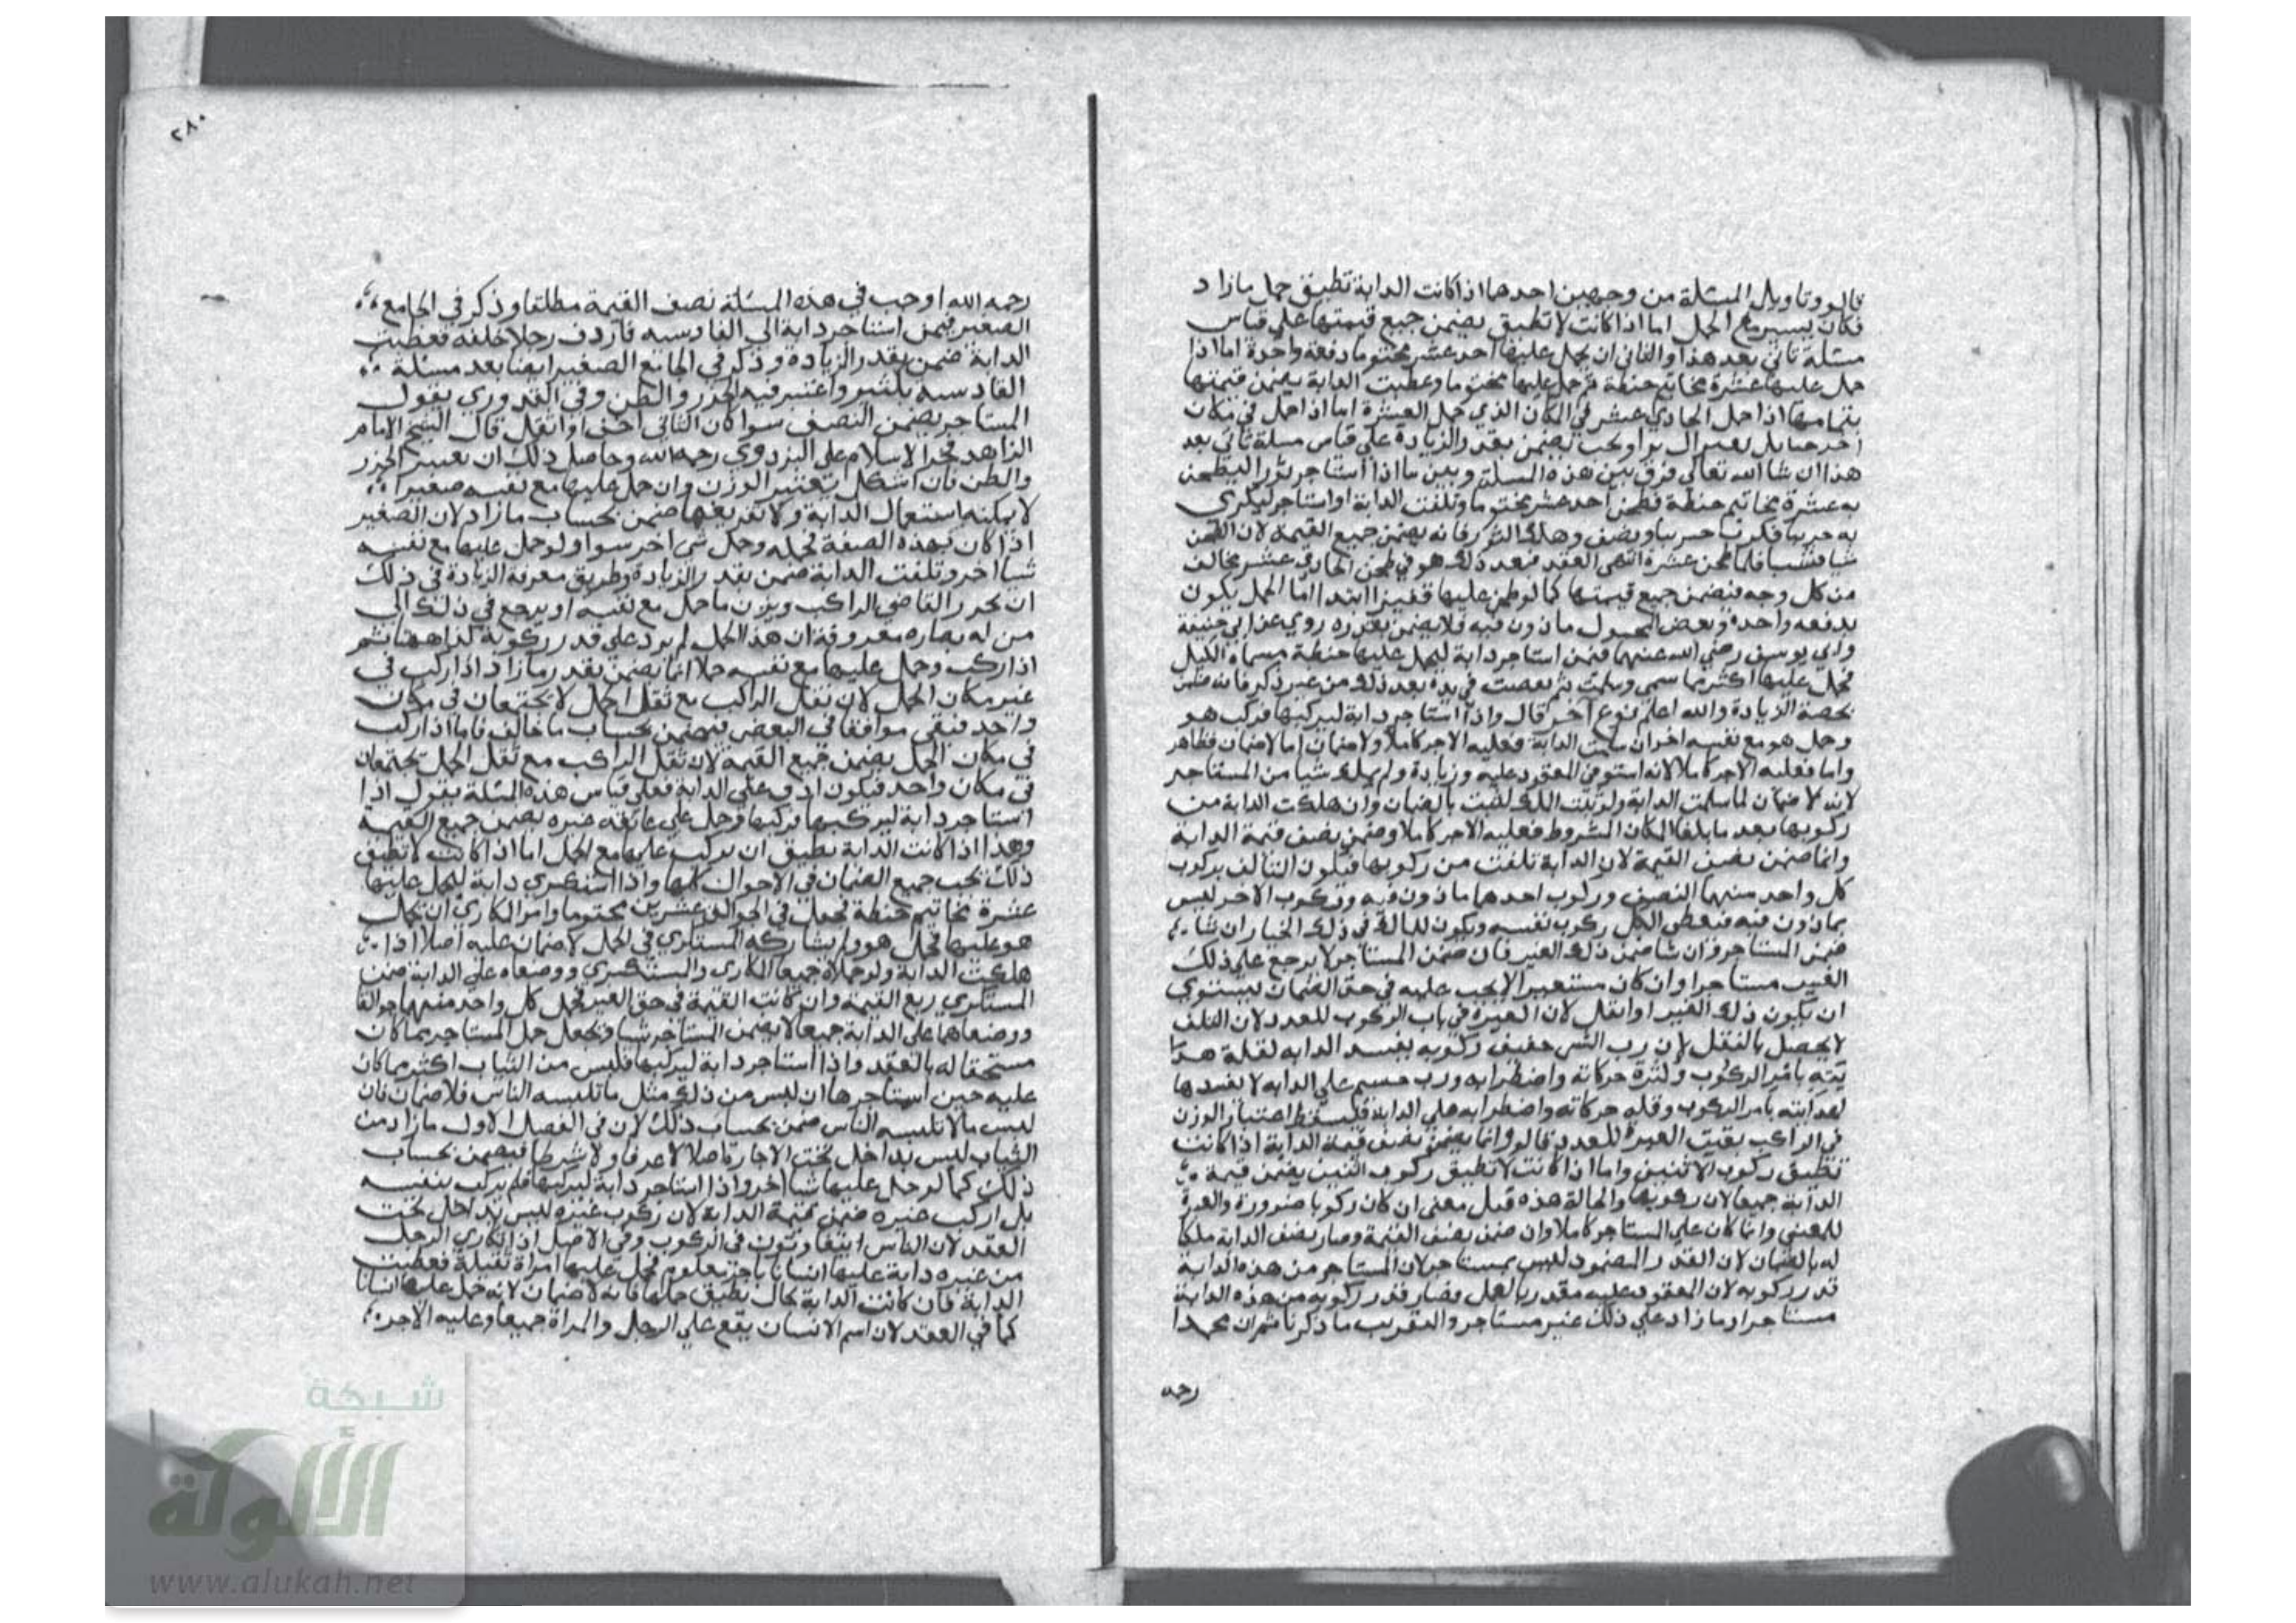 قالوا وتاويل المسئلة من وجهين احدهما اذا كانت الدابة تطيق حمل مازاد
فكان يسير مع الحمل اما اذا كانت لا تطيق يضمن جميع قيمتها علي قياس
مسئلة تاتي بعد هذا والثاني ان يحمل عليها احد عشر مختوما دفعة واحدة اما اذا
حمل عليها عشرة مخاتيم حنطة ثم حمل عليها مختوما وعطبت الدابة يضمن قيمتها
بتمامها اذا حمل الحادي عشر في المكان الذي حمل العشرة اما اذا حمل في مكان
اخر يضمن بقدر الزيادة علي قياس مسلة تاتي بعد
هذا ان شا الله تعالي فرق بين هذه المسلة وبين ما اذا استاجر ثورا ليطحن
به عشرة مخاتيم حنطة فطحن احد عشر مختوما وتلفت الدابة او استاجر ليكري
به جريبا فكرب جريبا ونصف وهلك الثور فانه يضمن جميع القيمة لان الطحن
شيا فشيا فلما طحن عشرة انتهي العقد فبعد ذلك هو في طحن الحادي عشر مخالف
من كل وجه فيضمن جميع قيمتها كما لو طحن عليها قفيزا ابتدا اما الحمل يكون
بدفعه واحدة وبعض المحمول ماذون فيه فلا يضمن بقدره روي عن ابي حنيفة
وابي يوسف رضي الله عنهما فيمن استاجر دابة ليحمل عليها حنطة مسماة الكيل
فحمل عليها اكثر مما سمي وسلمت ثم في يده بعد ذلك من غير ذكر فانه ضمن
بحصة الزيادة والله اعلم نوع اخر قال واذا استاجر دابة ليركبها فركب هو
وحمل هو مع نفسه اخر ان سلمت الدابة فعليه الاجر كاملا ولا ضمان اما لا ضمان فظاهر
واما فعليه الاجر كاملا لانه استوفي المعقود عليه وزيادة ولم يملك شيا من المستاجر
لانه لا ضمان لما سلمت الدابة بالضمان وان هلكت الدابة من
ركوبها بعد ما بلغا المكان المشروط فعليه الاجر كاملا وضمن نصف قيمة الدابة
وانما ضمن نصف القيمة لان الدابة تلفت من ركوبها فيكون التالف بركوب
كل واحد منهما النصف وركوب احدهما ماذون فيه وركوب الاخر ليس
بماذون فيه ركوب نفسه ويكون للمالك في ذلك الخيار ان شا
ضمن المستاجر وان شا ضمن ذلك الغير فان ضمن المستاجر لا يرجع علي ذلك
الغير مستاجرا وان كان مستعيرا لا يجب عليه في حق الضمان ليستوي
ان يكون ذلك الغير او اثقل لان العبرة في باب الركوب للعدد لان التلف
لا يحصل بالثقل لان رب شي خفيف ركوبه يفسد الدابه لقلة هدا
يته بامر الركوب وكثرة حركاته واضطرابه ورب جسيم علي الدابه لا يفسدها
لهدايته بامر الركوب وقله حركاته واضطرابه علي الدابة فليسقط اعتبار الوزن
في الراكب بقيت العبرة للعدد قالوا وانما يضمن نصف قيمة الدابة اذا كانت
تطيق ركوب الاثنين واما اذا كانت لا تطيق ركوب اثنين يضمن قيمة
الدابة جميعا لان ركوبها والحالة هذه قبل معني ان كان ركوبا صورة والعبرة
للمعني وانما كان علي المستاجر كاملا وان ضمن نصف القيمة وصار نصف الدابة ملكا
له بالضمان لان القدر المضمون ليس بمستاجر لان المستاجر من هذه الدابة
قدر ركوبه لان المعقود عليه مقدر بالعمل فصار قدر ركوبه من هذه الدابة
مستاجرا وما زاد علي ذلك غير مستاجر والتقريب ما ذكرنا ثم ان محمدا
رحمه
٢٨٠
رحمه الله اوجب في هذه المسئلة نصف القيمة مطلقا وذكر في الجامع
الصغير فيمن استاجر دابة الي القادسيه فاردف رجلا خلفه فعطبت
الدابة ضمن بقدر الزيادة وذكر في الجامع الصغير ايضا بعد مسئلة
القادسيه واعتبر فيه الحزر والظن وفي القدوري يقول
المستاجر يضمن النصف سوا كان الثاني اخف او اثقل قال الشيخ الامام
الزاهد فخر الاسلام علي البزدوي رحمه الله وحاصل ذلك ان يعتبر الحزر
والظن فان اشكل يعتبر الوزن وان حمل عليها مع نفسه صغيرا
لا يمكنه استعمال الدابة ولا تفريعها ضمن بحساب ما زاد لان الصغير
اذا كان بهذه الصفة فحمله وحمل شي اخر سوا ولو حمل عليها مع نفسه
شيا اخر وتلفت الدابة ضمن بقدر الزيادة وطريق معرفة الزيادة في ذلك
ان يحزر القاضي الراكب ويزن ما حمل مع نفسه او يرجع في ذلك الي
من له بصاره معروفة ان هذا الحمل لم يزد علي قدر ركوبة كذا ههنا ثم
اذا ركب وحمل عليها مع نفسه حملا انما يضمن بقدر ما زاد اذا ركب في
غير مكان الحمل لان ثقل الراكب مع ثقل الحمل لا يجتمعان في مكان
واحد فبقي موافقا في البعض فيضمن بحساب ما خالف فاما اذا ركب
في مكان الحمل يضمن جميع القيمة لان ثقل الراكب مع ثقل الحمل يجتمعان
في مكان واحد فيكون ادق علي الدابة فعلي قياس هذه المسئلة يقول اذا
استاجر دابة ليركبها فركبها وحمل علي عاتقه غيره يضمن جميع القيمة
وهذا اذا كانت الدابة تطيق ان يركب عليها مع الحمل اما اذا كانت لا تطيق
ذلك يجب جميع الضمان في الاحوال كلها واذا استكري دابة ليحمل عليها
عشرة مخاتيم حنطة فجعل في الجوالق عشرين مختوما وامر المكاري ان يحمل
هو عليها فحمل هو ولم يشاركه المستكري في الحمل لا ضمان عليه اصلا اذا
هلكت الدابة ولو حملاه جميعا المكاري والمستكري ووضعاه علي الدابة ضمن
المستكري ربع القيمة وان كانت القيمة في حق العير فحمل كل واحد منهما جوالقا
ووضعاهما علي الدابة جميعا لا يضمن المستاجر شيا ويجعل حمل المستاجر بما كان
مستحقا له بالعقد واذا استاجر دابة ليركبها فلبس من الثياب اكثر مما كان
عليه حين استاجرها ان لبس من ذلك مثل ما تلبسه الناس فلا ضمان فان
لبس مالا تلبسه الناس ضمن بحساب ذلك لان في الفصل الاول ما زاد من
الثياب ليس بداخل تحت الاجارة اصلا لا عرفا ولا شرطا فيضمن بحساب
ذلك كما لو حمل عليها شيا اخر واذا استاجر دابة ليركبها فلم يركب بنفسه
بل اركب غيره ضمن قيمة الدابة لان ركوب غيره ليس بداخل تحت
العقد لان الناس يتفاوتون في الركوب وفي الاصل اذا اكاري الرجل
من غيره دابة عليها انسانا باجر معلوم فحمل عليها امراة ثقيلة فعطبت
الدابة فان كانت الدابة بحال تطيق حملها فانه لا ضمان لانه حمل عليها انسانا
كما في العقد لان اسم الانسان يقع علي الرجل والمراة جميعا وعليه الاجر
شبكة
الألوكة
www.alukah.net